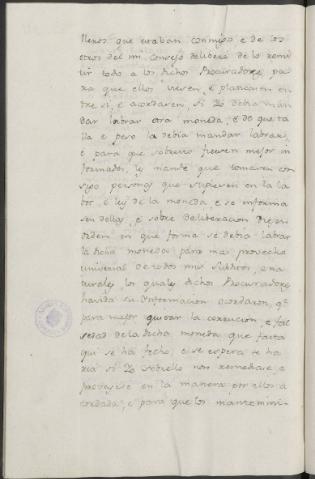 lleros que estaban conmigo e de los
otros del mi Consejo deliberé de lo remi
tir todo a los dichos Procuradores, pa
ra que ellos viesen, e platicasen en
tre si, e acordasen, si Yo debia man
dar labrar otra moneda, e de que ta
lla e peso la debia mandar labrar,
e para que sobre ello fuesen mejor in
formados, les mandé que tomasen con
sigo personas que supiesen en la la
bor, e ley de la moneda e se informa
sen dellas, e sobre deliberacion diesen
orden en que forma se debia labrar
la dicha moneda para mas provecho
universal de todos mis subditos, e na
turales, los quales dichos Procuradores
havida su informacion acordaron, qe
para mejor quitar la corrucion, e fal
sedad de la dicha moneda que fasta
qui se ha fecho, e se espera se ha
ria si Yo sobrello non remediase, e
proveyese en la manera por ellos a
cordada, e para que los mantenimi-